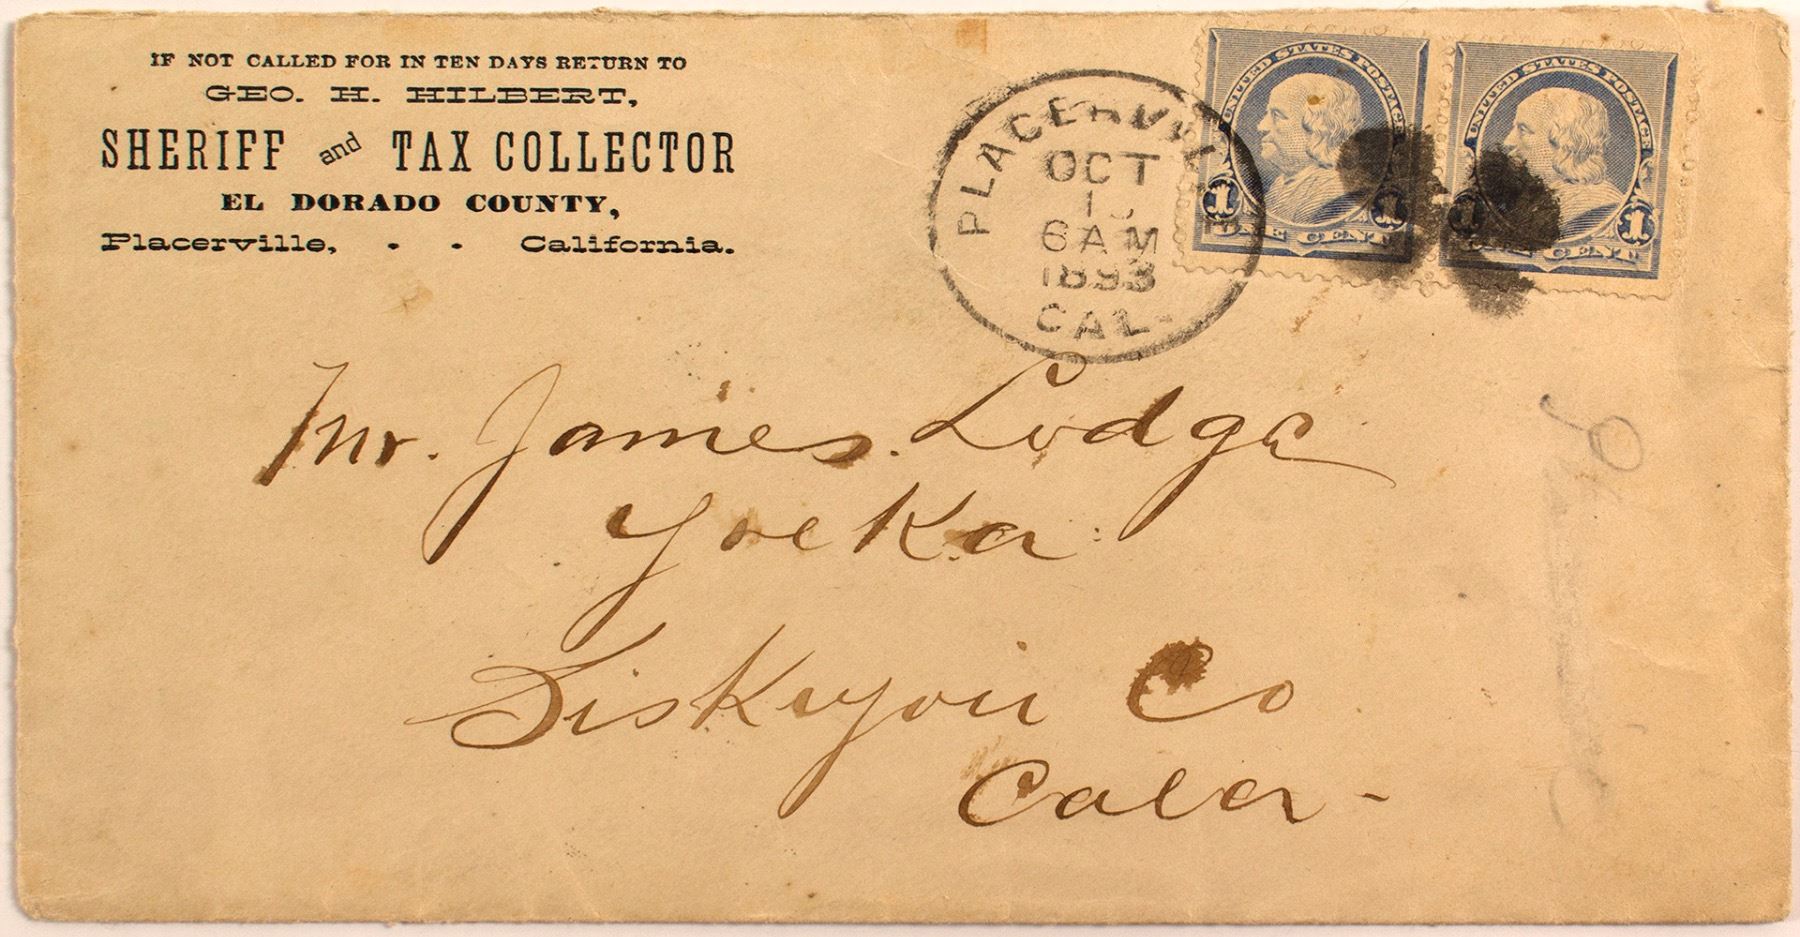 IF NOT CALLED FOR IN TEN DAYS RETURN TO
GEO. H. HILBERT,
SHERIFF and TAX COLLECTOR
EL DORADO COUNTY,
Placerville, - - California.
PLACERVILLE
OCT
6 AM
1893
CAL.
UNITED STATES POSTAGE
1 1
ONE CENT
UNITED STATES POSTAGE
1 1
ONE CENT
Mr. James. Lodge
Yreka
Siskiyou Co